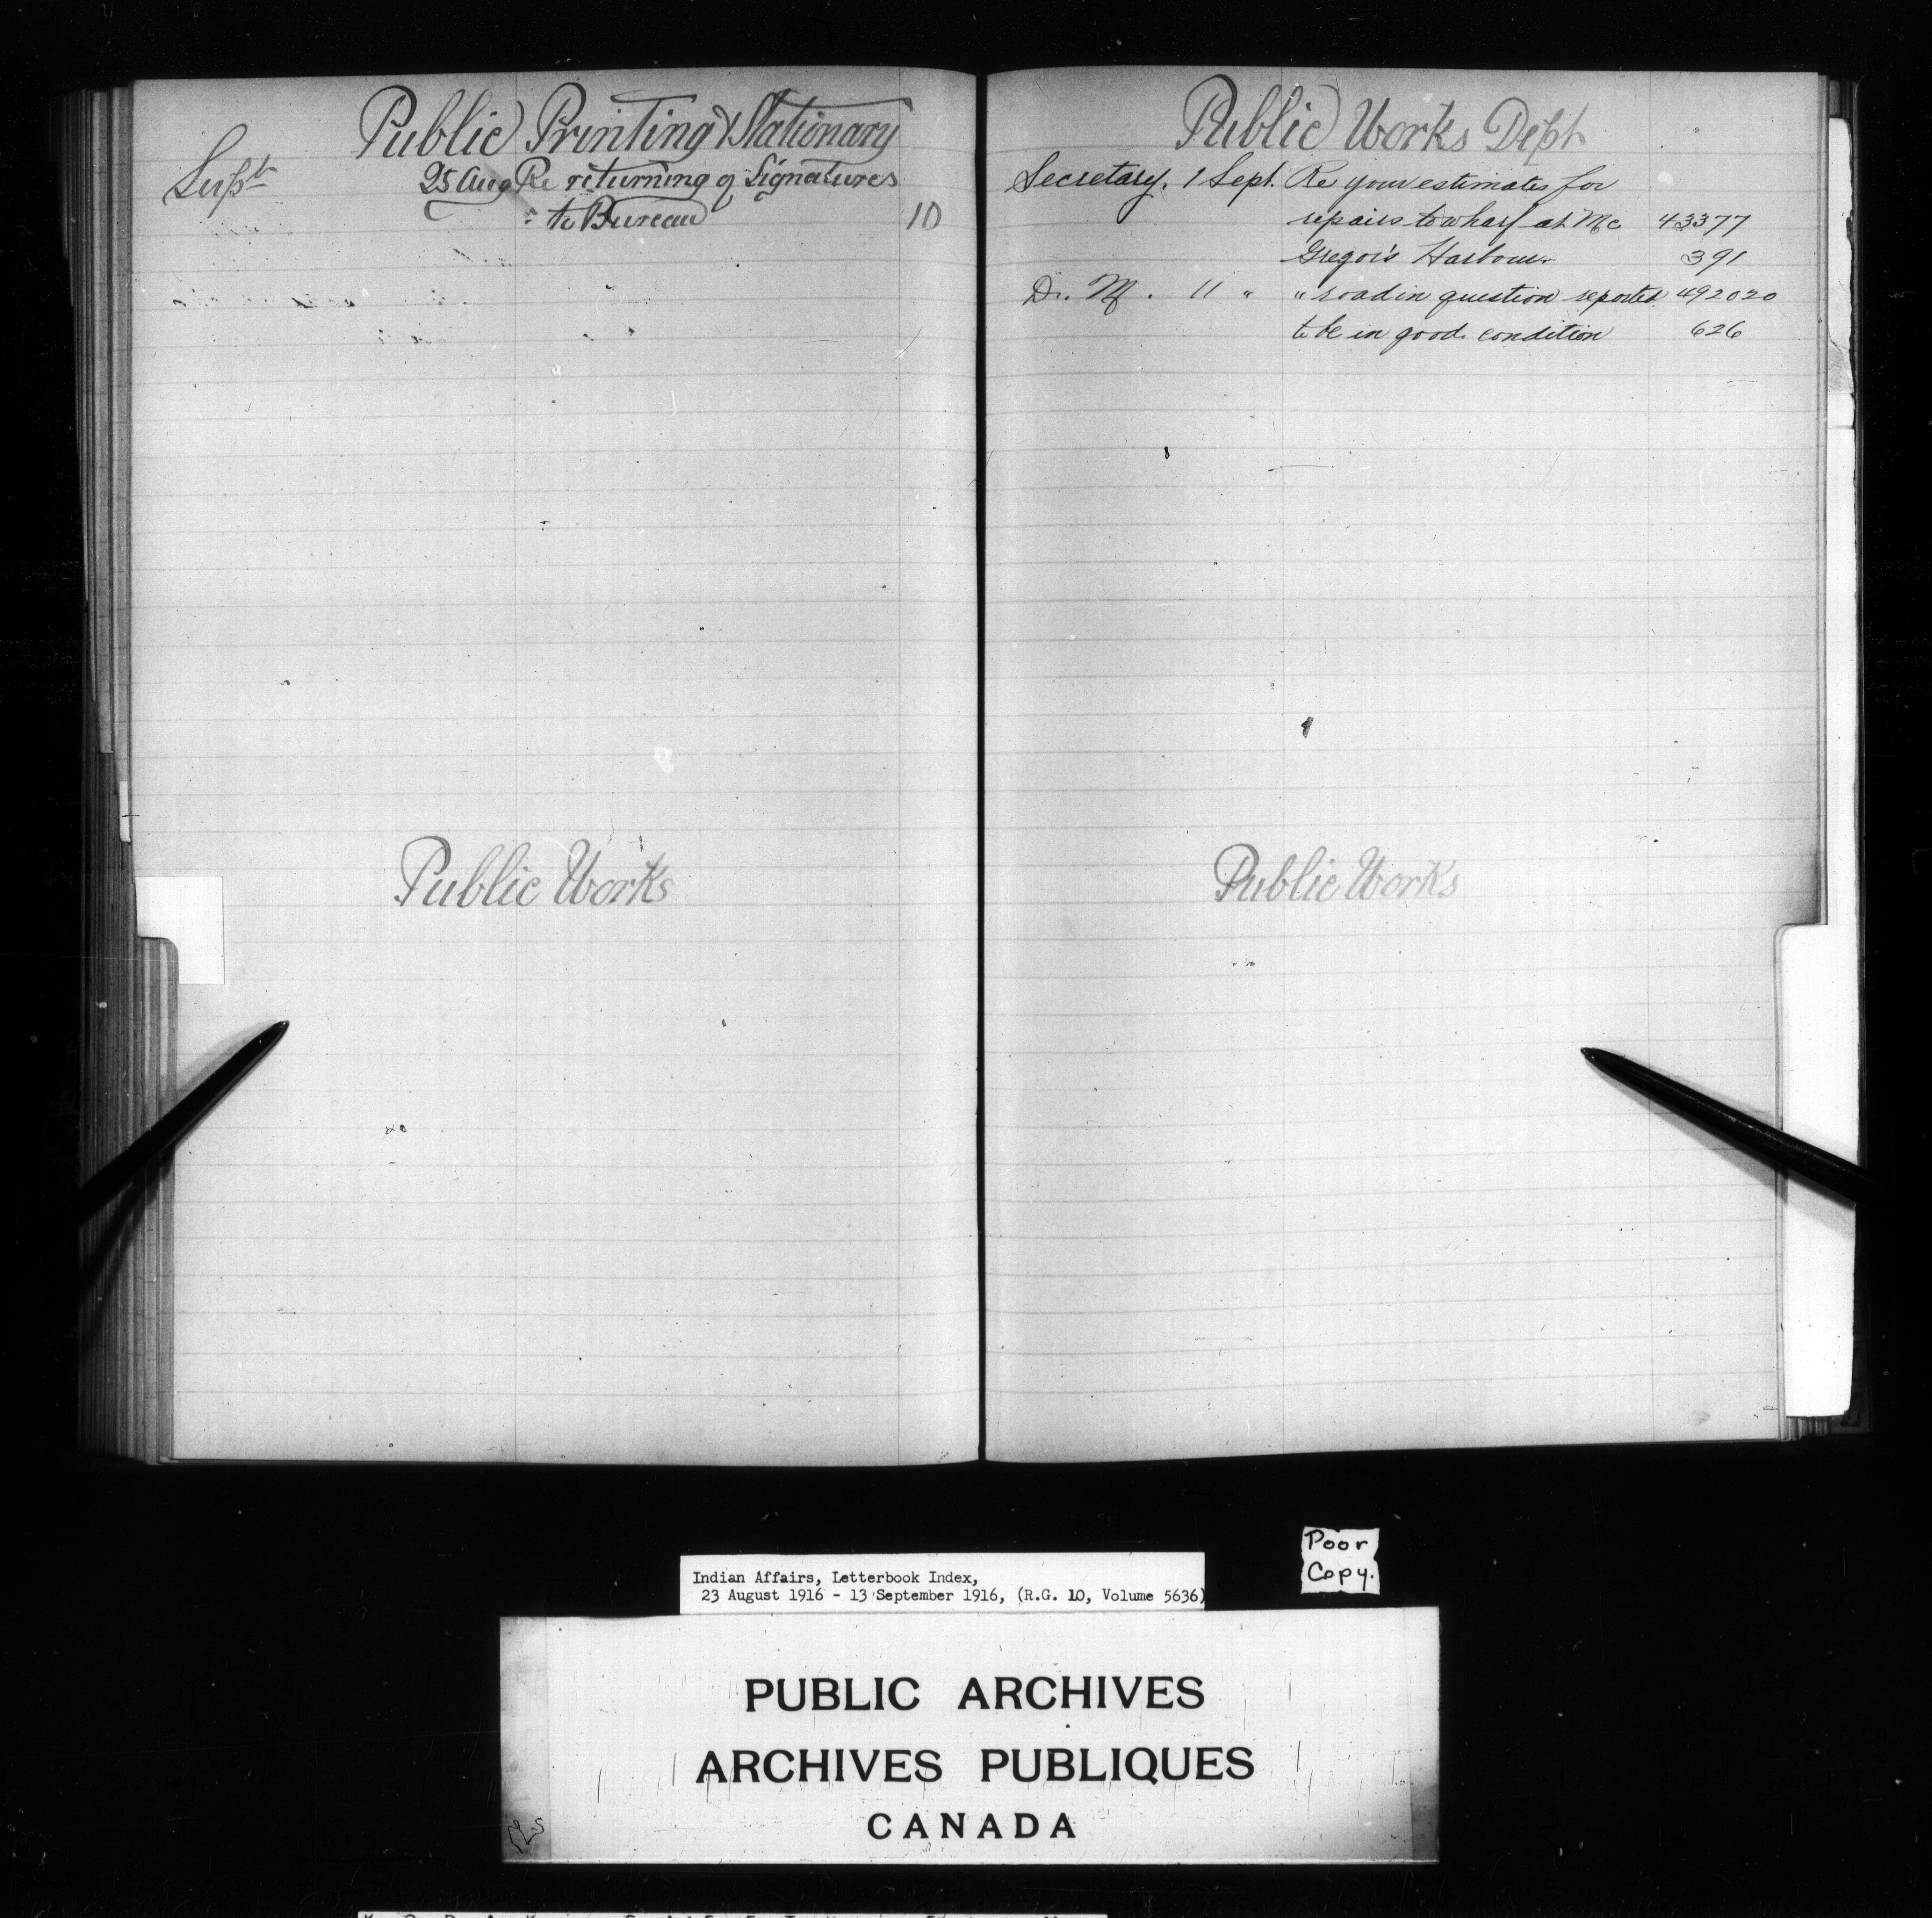 Public Printing & Stationary
Supt 25 Aug Re returning of Signatures
to Bureau 10
Public Works
Public Works Dept
Secretary. 1 Sept. Re your estimates for
repairs to wharf at Mc 43377
Gregor's Harbour. 391
D. M. 11 " " road in question reported 492020
to be in good condition 626
Public Works
Poor
Copy.
Indian Affairs, Letterbook Index,
23 August 1916 - 13 September 1916, (R.G. 10, Volume 5636)
PUBLIC ARCHIVES
ARCHIVES PUBLIQUES
CANADA